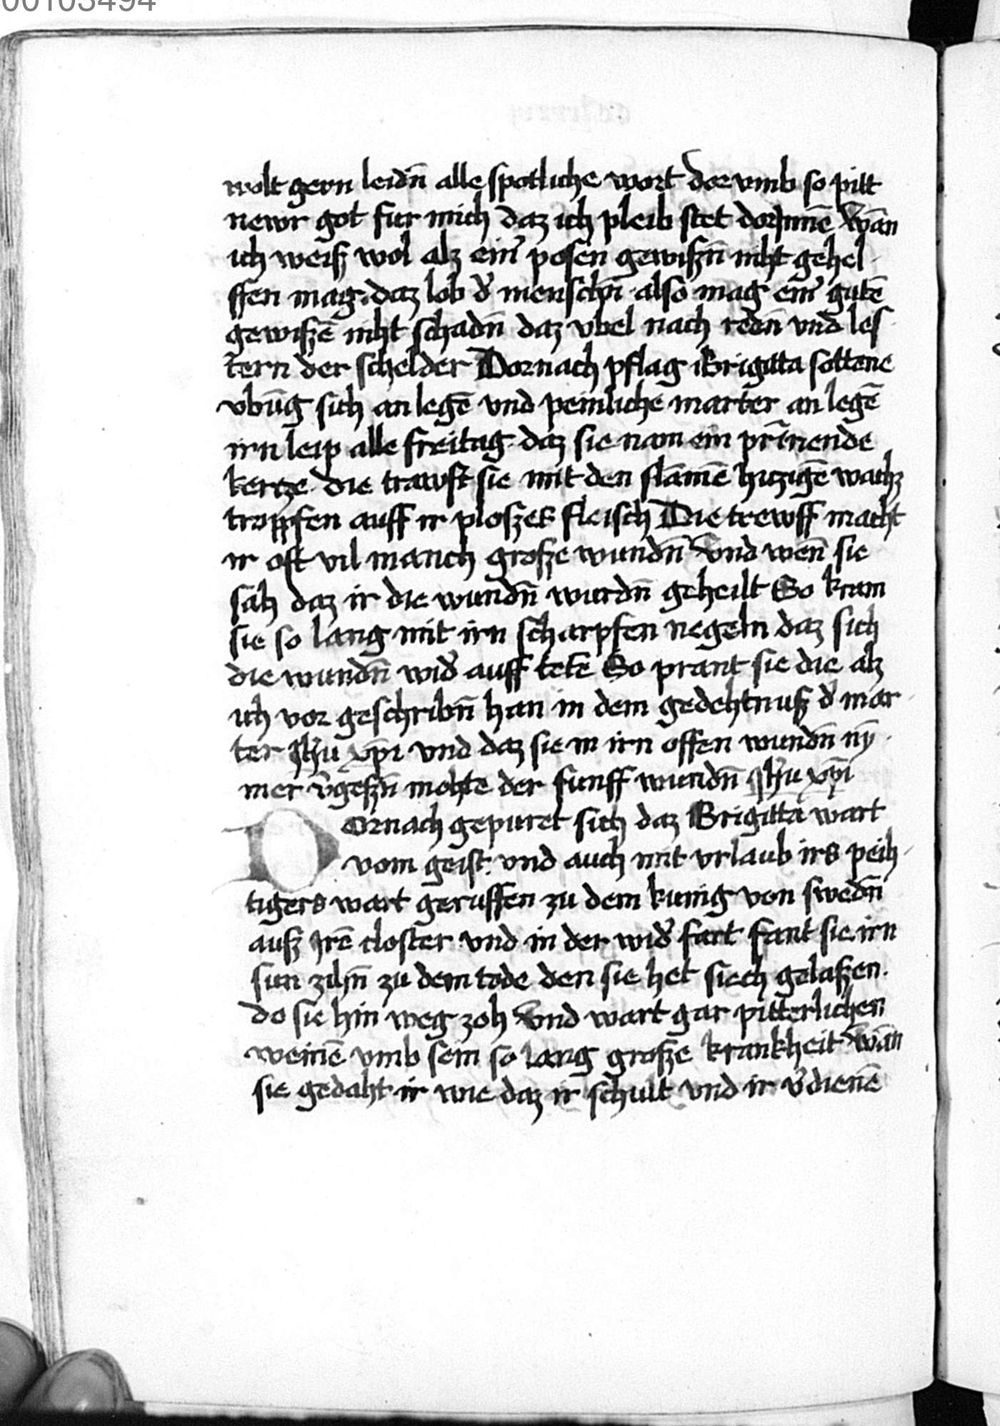 00103494
wolt gern leidn̄ alle spotliche wort dor vmb so pitt
newr got fur mich daz ich pleib stet dorJnnē Wān
ich weiß wol alz eim̄ posen gewißn̄ niht gehel¬
ffen mag daz lob d̓ menschn̄ also mag eim̄ gutē
gewißē niht schadn̄ daz vbel nach redn̄ vnd les¬
tern der schelder Dornach pflag Brigitta sottene
vbūg sich an legē vnd peinliche marter an legē
irn leip alle freitag daz sie nam ein prīnende
kertze die trawft sie mit den flamē hizigē wachz
tropfen auff ir ploszes fleisch Die trewff macht
ir oft vil manch große wundn̄ Vnd wen̄ sie
sah daz ir die wundn̄ wurdn̄ geheilt So kram
sie so lang mit irn scharpfen negeln daz sich
die wundn̄ wid̓ auff tetē So prant sie die alz
ich vor geschribn̄ han in dem gedehtnuß d̓ mar¬
ter Jhū xp̄i vnd daz sie in irn offen wundn̄ nȳ¬
mer v̓geßn̄ mohte der funff wundn̄ Jhū xp̄i
Dornach gepuret sich daz Brigitta wart
vom geist vnd auch mit vrlaub irs peih¬
tigers wart geruffen zu dem kunig von swedn̄
auß Jrē closter vnd in der wid̓ fart fant sie irn
sun zihn̄ zu dem tode den sie het siech gelaßen.
do sie hin weg zoh Vnd wart gar pitterlichen
weinē vmb sein so lang große krankheit Wān
sie gedaht ir wie daz ir schult vnd ir v̓dienē